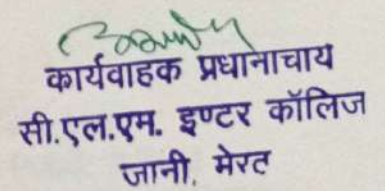 कार्यवाहक प्रधानाचाय
सी.एल.एम. इण्टर कॉलिज
जानी, मेरट